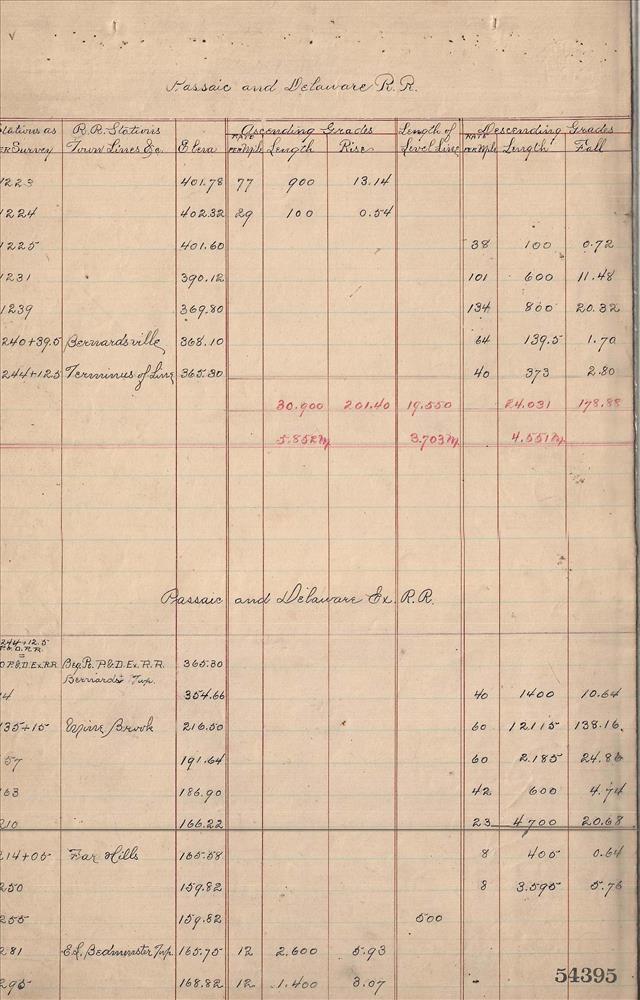 Passaic and Delaware R.R.
Stations as R.R. Stations Ascending Grades Length of Descending Grades
per Survey Town Lines &c. Eleva RATE PER Mile Length Rise Level Line RATE PER Mile Length Fall
1223 401.78 77 900 13.14
1224 402.32 29 100 0.54
1225 401.60 38 100 0.72
1231 390.12 101 600 11.48
1239 369.80 134 800 20.32
240+39.5 Bernardsville 368.10 64 139.5 1.70
244+12.5 Terminus of Line 365.30 40 373 2.80
30.900 201.40 19.550 24.031 178.88
5.852m 3.703m 4.551m
Passaic and Delaware Ex. R.R.
244+12.5
P.&D.R.R.
=
0 P.&D.Ex.RR Beg. Pt. P.&D. Ex. R.R. 365.30
Bernards Twp.
4 354.66 40 1400 10.64
135+15 Mine Brook 216.50 60 12115 138.16
57 191.64 60 2.185 24.86
163 186.90 42 600 4.74
210 166.22 23 4700 20.68
214+05 Far Hills 165.58 8 405 0.64
250 159.82 8 3.595 5.76
255 159.82 500
281 E.L. Bedminster Twp. 165.75 12 2.600 5.93
295 168.82 12 1.400 3.07
54395